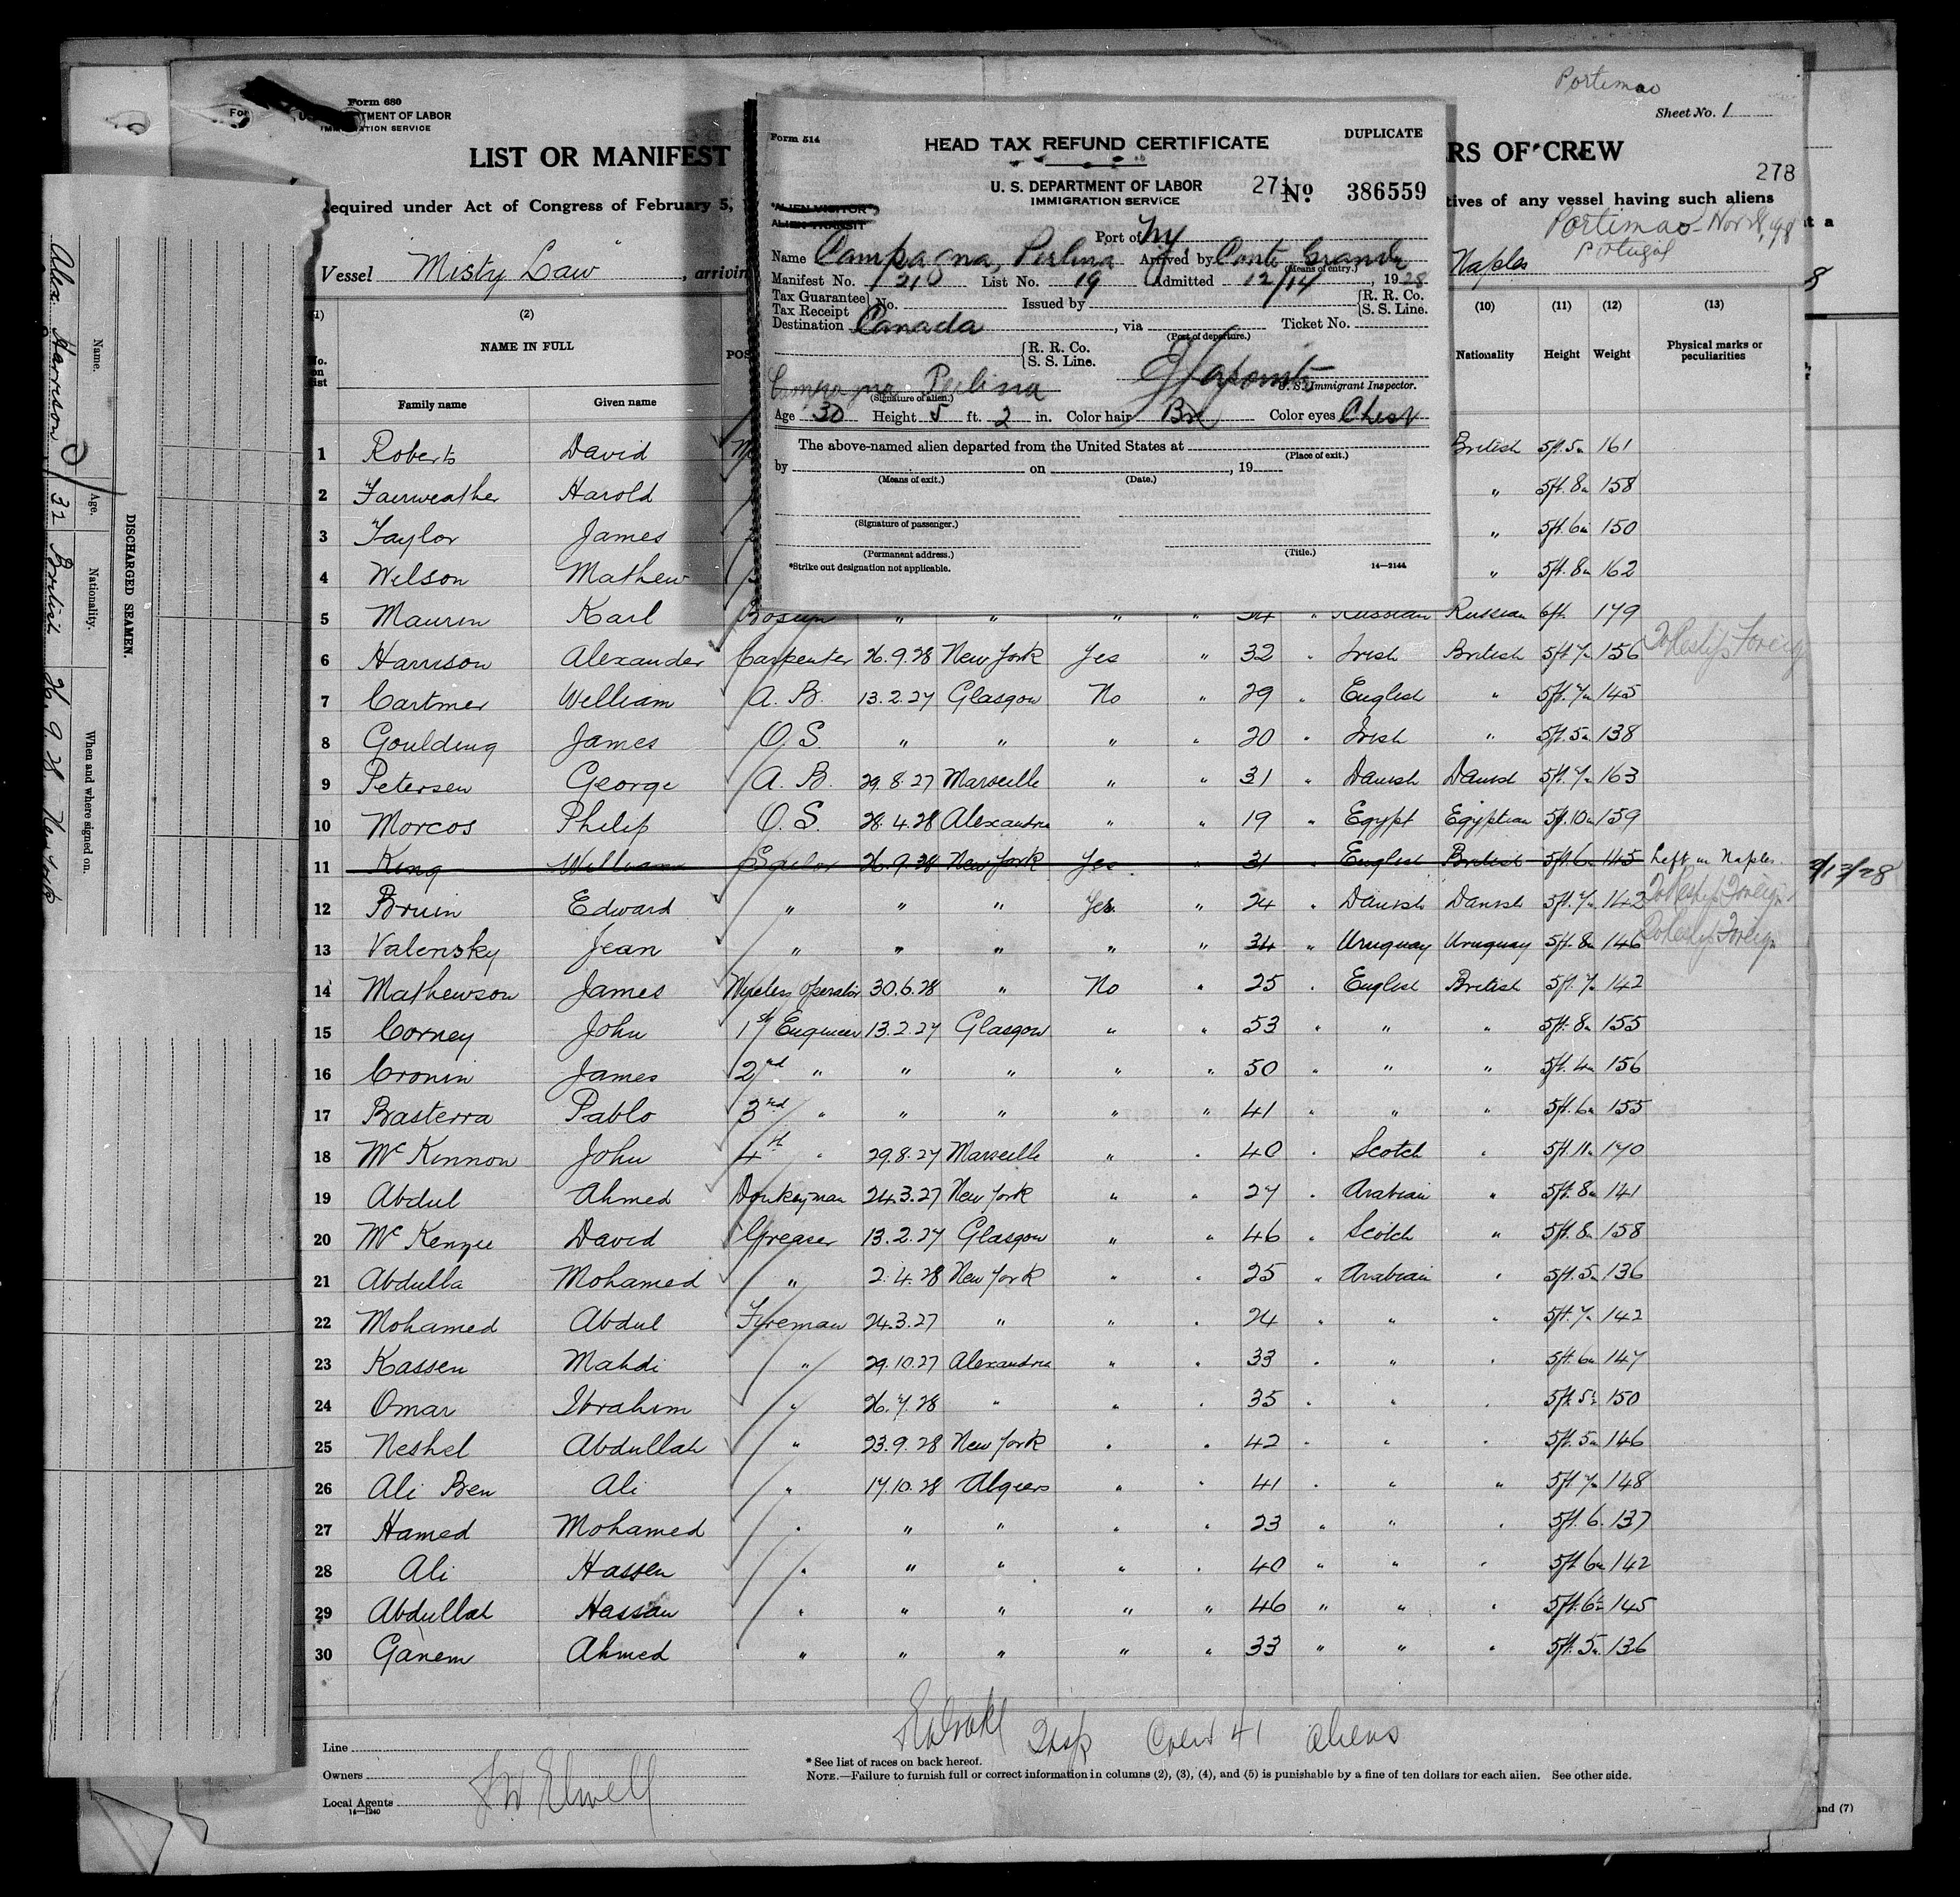 Portimao
Sheet No. 1
Form 680
U. S. DEPARTMENT OF LABOR
IMMIGRATION SERVICE
LIST OR MANIFEST
RS OF CREW
278
Required under Act of Congress of February 5,
tives of any vessel having such aliens
Portimao
Portugal
Vessel Misty Law, arrivin
Naples
Form 514
HEAD TAX REFUND CERTIFICATE
DUPLICATE
U. S. DEPARTMENT OF LABOR
IMMIGRATION SERVICE
271
No. 386559
*ALIEN VISITOR
ALIEN TRANSIT
Port of NY
Name Campagna, Perlina Arrived by Conte Grande
(Means of entry.)
Manifest No. 1310 List No. 19 Admitted 12/14, 1928
Tax Guarantee No. Issued by R. R. Co.
Tax Receipt S. S. Line.
Destination Canada, via Ticket No.
(Port of departure.)
R. R. Co.
S. S. Line.
Campagna Perlina
(Signature of alien.)
U. S. Immigrant Inspector.
Age 30 Height 5 ft. 2 in. Color hair Br Color eyes Chest
The above-named alien departed from the United States at
(Place of exit.)
by on , 19
(Means of exit.) (Date.)
(Signature of passenger.)
(Permanent address.) (Title.)
*Strike out designation not applicable.
14—2144
(1) (2) (10) (11) (12) (13)
No. on list NAME IN FULL POS Nationality Height Weight Physical marks or peculiarities
Family name Given name
1 Roberts David British 5ft.5in 161
2 Fairweather Harold " 5ft.8in 158
3 Taylor James " 5ft.6in 150
4 Wilson Mathew " 5ft.8in 162
5 Maurin Karl Bosun " " " " 34 " Russian Russian 6ft. 179
6 Harrison Alexander Carpenter 26.9.28 New York Yes " 32 " Irish British 5ft.7in 156
7 Cartmer William A. B. 13.2.27 Glasgow No " 29 " English " 5ft.7in 145
8 Goulding James O. S. " " " " 20 " Irish " 5ft.5in 138
9 Petersen George A. B. 29.8.27 Marseille " " 31 " Danish Danish 5ft.7in 163
10 Morcos Philip O. S. 28.4.28 Alexandria " " 19 " Egypt Egyptian 5ft.10in 159
11 King William Sailor 26.9.28 New York Yes " 31 " English British 5ft.6in 145 Left in Naples.
12 Bruin Edward " " " Yes. " 24 " Danish Danish 5ft.7in 142
13 Valensky Jean " " " " " 34 " Uruguay Uruguay 5ft.8in 146
14 Mathewson James Wireless Operator 30.6.28 " No " 25 " English British 5ft.7in 142
15 Corney John 1st Engineer 13.2.27 Glasgow " " 53 " " " 5ft.8in 155
16 Cronin James 2nd " " " " " 50 " " " 5ft.4in 156
17 Basterra Pablo 3rd " " " " " 41 " " " 5ft.6in 155
18 McKinnon John 4th " 29.8.27 Marseille " " 40 " Scotch " 5ft.11in 170
19 Abdul Ahmed Donkeyman 24.3.27 New York " " 27 " Arabian " 5ft.8in 141
20 McKenzie David Greaser 13.2.27 Glasgow " " 46 " Scotch " 5ft.8in 158
21 Abdulla Mohamed " 2.4.28 New York " " 25 " Arabian " 5ft.5in 136
22 Mohamed Abdul Fireman 24.3.27 " " " 24 " " " 5ft.7in 142
23 Kassen Mahdi " 29.10.27 Alexandria " " 33 " " " 5ft.6in 147
24 Omar Ibrahim " 26.7.28 " " " 35 " " " 5ft.5in 150
25 Neshel Abdullah " 23.9.28 New York " " 42 " " " 5ft.5in 146
26 Ali Ben Ali " 17.10.28 Algiers " " 41 " " " 5ft.7in 148
27 Hamed Mohamed " " " " " 23 " " " 5ft.6. 137
28 Ali Hassen " " " " " 40 " " " 5ft.6in 142
29 Abdullah Hassan " " " " " 46 " " " 5ft.6in 145
30 Ganem Ahmed " " " " " 33 " " " 5ft.5in 136
Crew 41 aliens
Line
* See list of races on back hereof.
Owners
NOTE.—Failure to furnish full or correct information in columns (2), (3), (4), and (5) is punishable by a fine of ten dollars for each alien. See other side.
Local Agents J W Elwell
14—1240
and (7)
DISCHARGED SEAMEN.
Name. Age. Nationality. When and where signed on.
Alex Harrison 32 British 26.9.28 New York